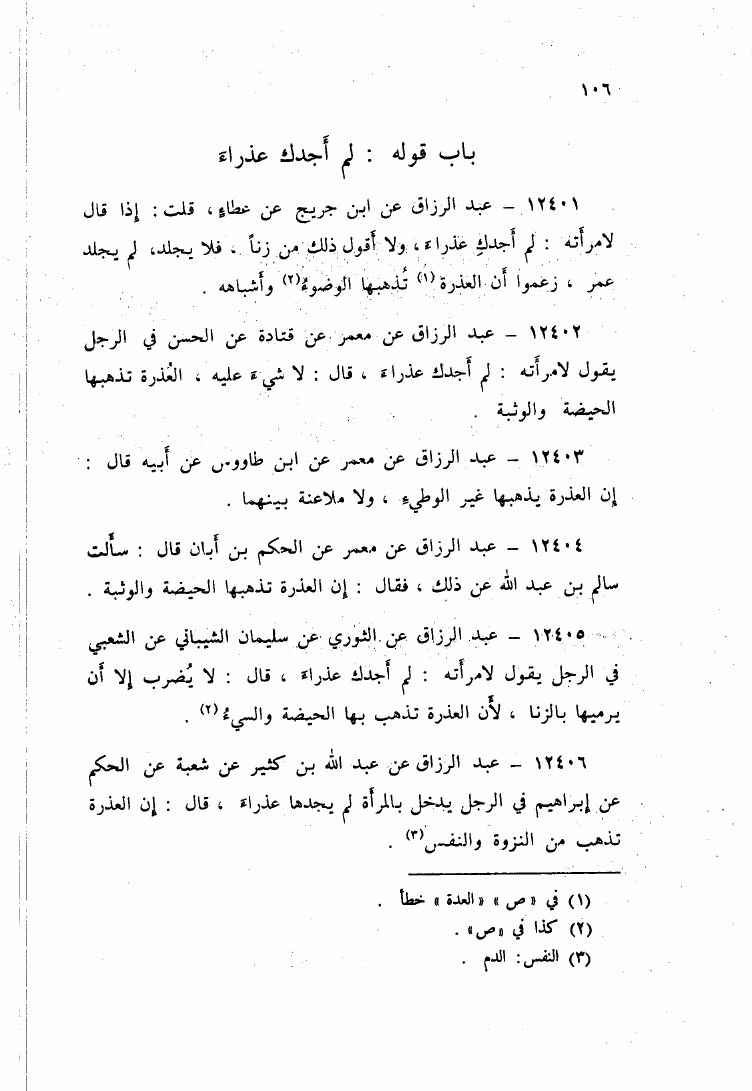 ١٠٦
باب قوله : لم أجدك عذراءَ
١٢٤٠١ – عبد الرزاق عن ابن جريج عن عطاءٍ، قلت : إذا قال
لامرأته : لم أجدكِ عذراءَ، ولا أقول ذلك من زناً ، فلا يجلد، لم يجلد
عمر ، زعموا أن العذرة(١) تُذهبها الوضوءُ(٢) وأشباهه .
١٢٤٠٢ – عبد الرزاق عن معمر عن قتادة عن الحسن في الرجل
يقول لامرأته : لم أجدك عذراءَ ، قال : لا شيءَ عليه ، العُذرة تذهبها
الحيضة والوثبة .
١٢٤٠٣ – عبد الرزاق عن معمر عن ابن طاووس عن أبيه قال :
إن العذرة يذهبها غير الوطيءِ ، ولا ملاعنة بينهما .
١٢٤٠٤ – عبد الرزاق عن معمر عن الحكم بن أبان قال : سألت
سالم بن عبد الله عن ذلك ، فقال : إن العذرة تذهبها الحيضة والوثبة .
١٢٤٠٥ – عبد الرزاق عن الثوري عن سليمان الشيباني عن الشعبي
في الرجل يقول لامرأته : لم أجدك عذراءَ ، قال : لا يُضرب إلا أن
يرميها بالزنا ، لأن العذرة تذهب بها الحيضة والسيءُ(٢) .
١٢٤٠٦ – عبد الرزاق عن عبد الله بن كثير عن شعبة عن الحكم
عن إبراهيم في الرجل يدخل بالمرأة لم يجدها عذراءَ ، قال : إن العذرة
تذهب من النزوة والنفس(٣) .
(١) في « ص » « العدة » خطأ .
(٢) كذا في «ص» .
(٣) النفس : الدم .